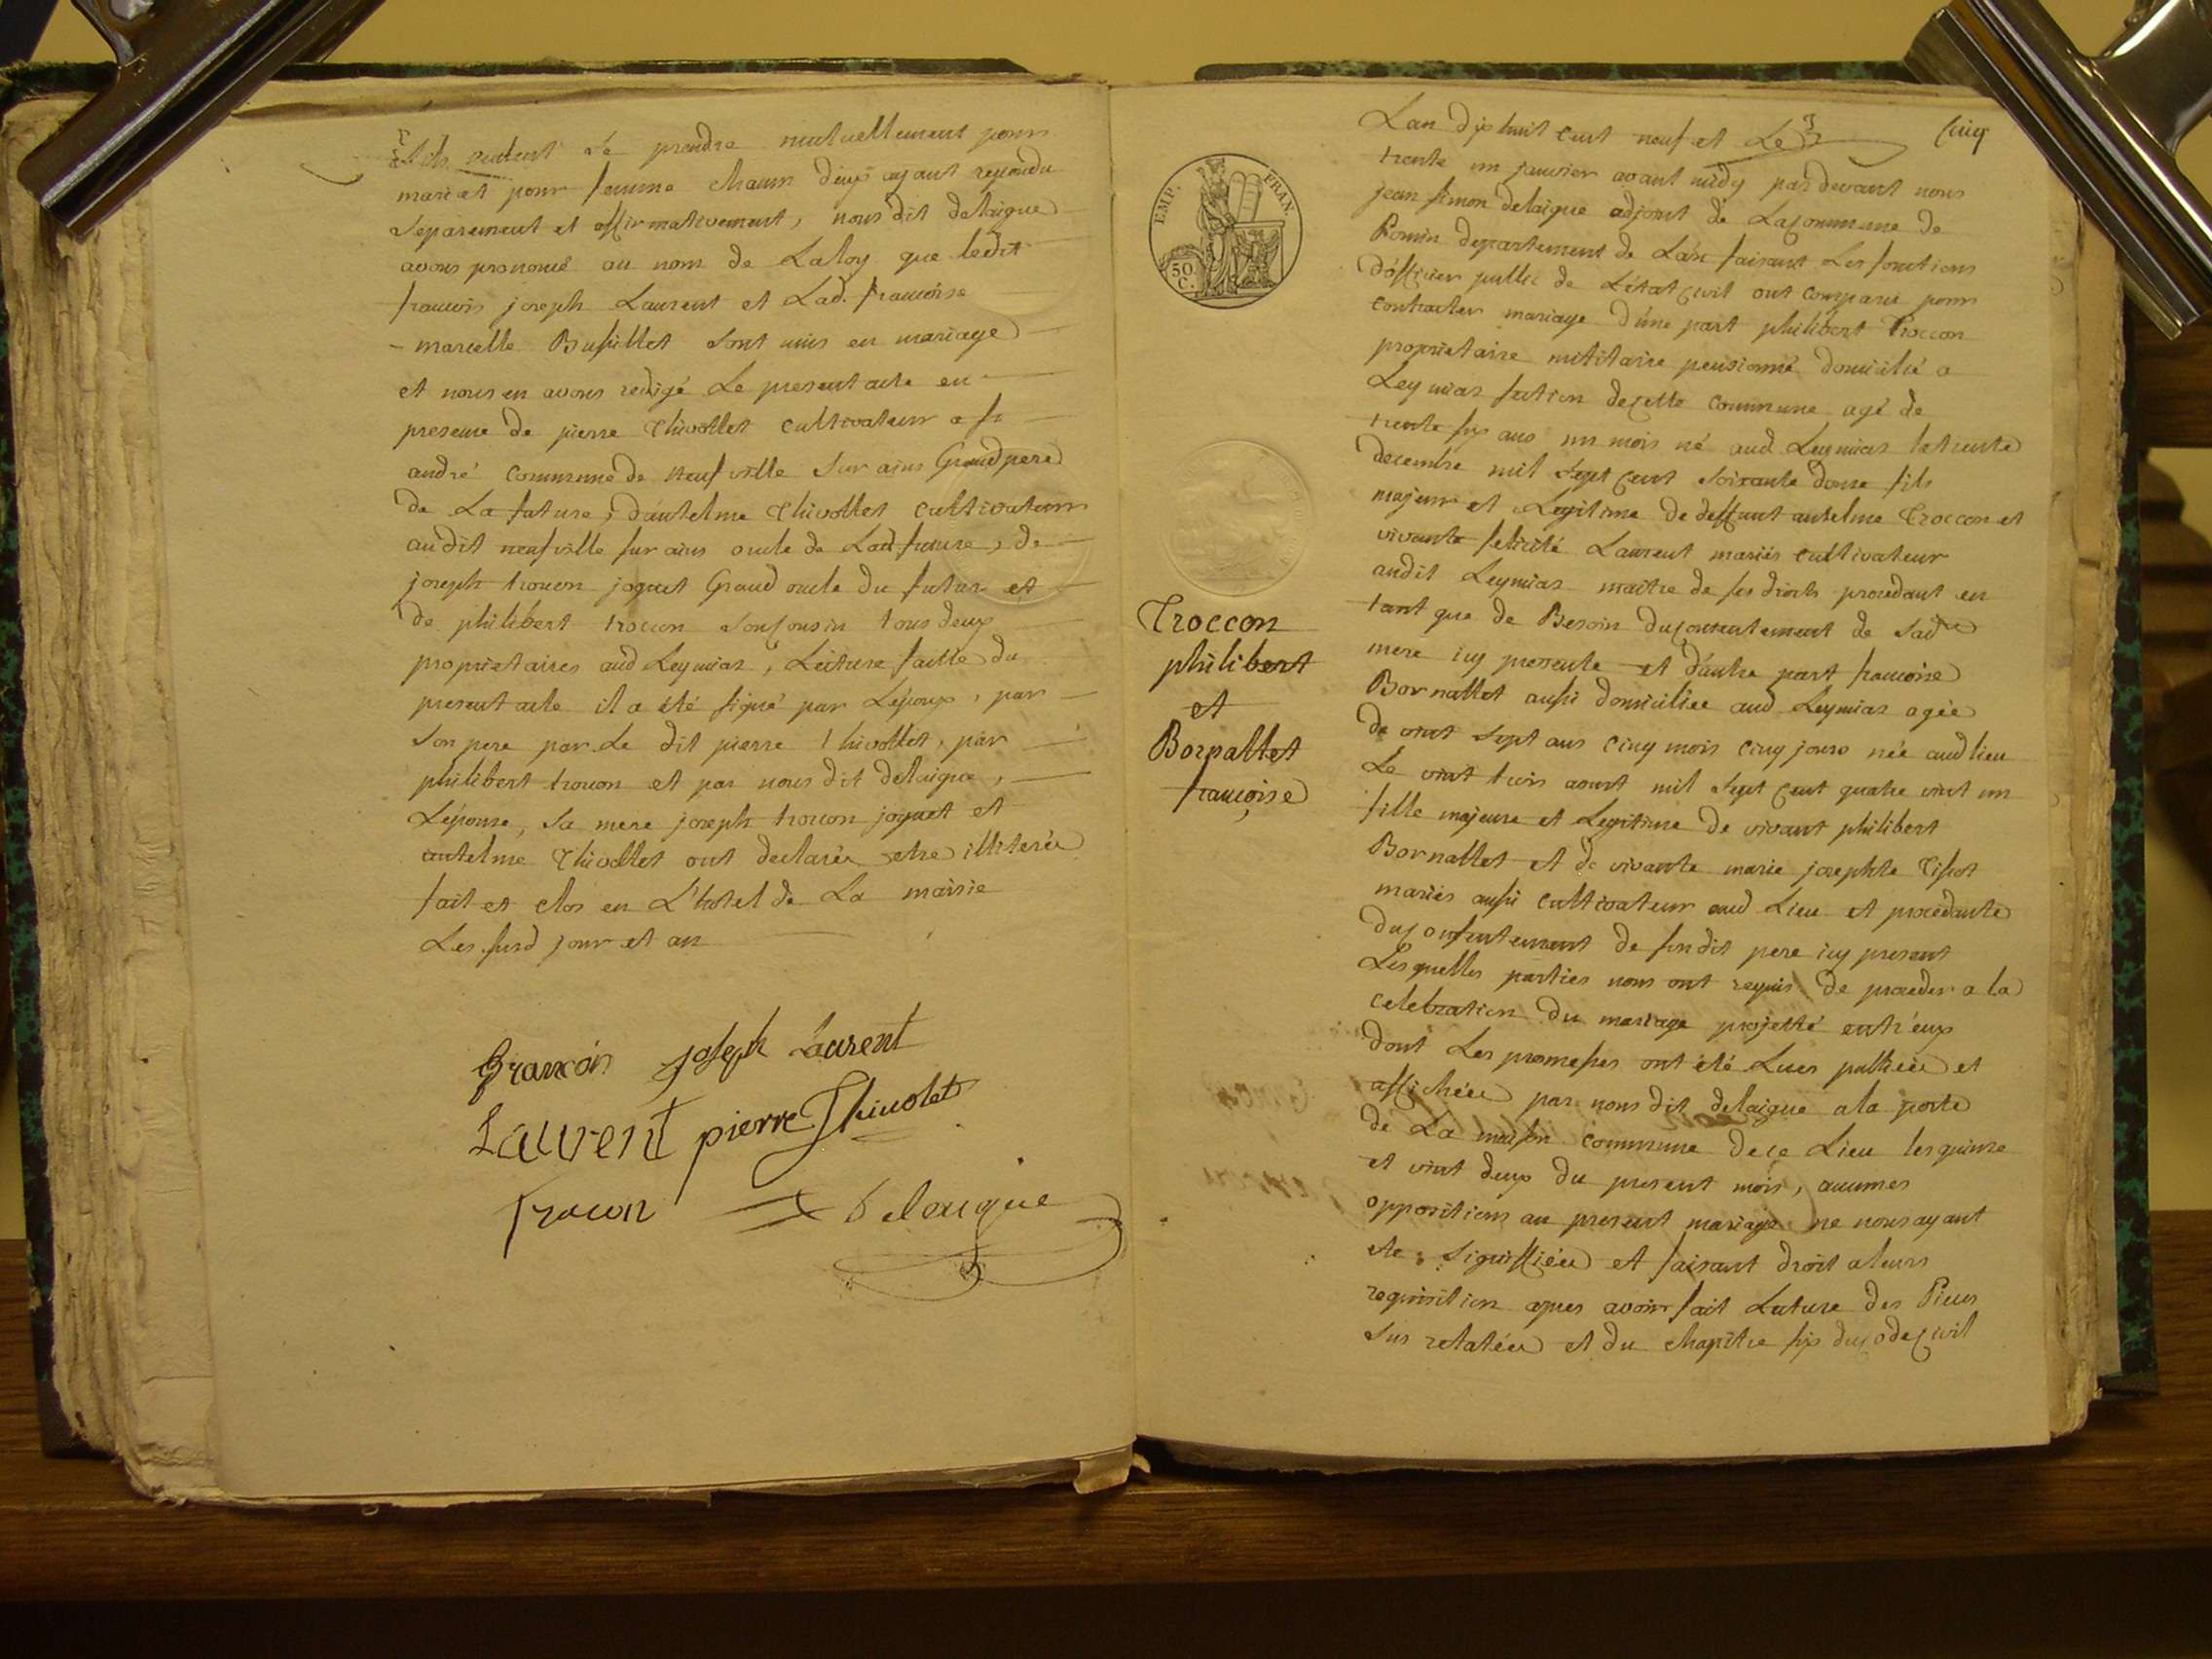 S'ils veulent se prendre mutuellement pour
mari et pour femme chacun d'eux ayant repondu
separement et affirmativement, nous dit delaigue
avons prononcé au nom de La loy que ledit
francois joseph Laurent et Lad. francoise
marcelle Bufillet sont unis en mariage
et nous en avons redigé Le present acte en
presence de pierre Thivollet cultivateur a st
andré commune de neufville sur ains Grand pere
de La future, d'antelme Thivollet cultivateur
audit neufville sur ains oncle de Lad future, de
joseph trocon joquet Grand oncle du futur et
de philibert trocon son cousin tous deux
proprietaires aud Leymiaz, Lecture faitte du
present acte il a été signé par L'époux, par
son pere par Le dit pierre thivollet, par
philibert trocon et par nous dit delaigue,
L'épouse, sa mere joseph trocon joquet et
antelme Thivollet ont declarés etre illiterés
fait et clos en L'hotel de La mairie
Les susd jour et an
françois joseph Laurent
Laurent pierre Thivolet
Trocon Delaigue
cinq
Lan dix huit cent neuf et Le
trente un janvier avant midy par devant nous
jean simon delaigue adjoint de La commune de
departement de L'ain faisant Les fonctions
d'officier public de L'état civil ont comparu pour
contracter mariage d'une part philibert Troccon
proprietaire militaire pensionné domicilié a
Leymiaz section de cette commune agé de
trente six ans un mois né aud Leymiaz le trente
decembre mil sept cent soixante douze fils
majeur et Legitime de deffunt antelme Troccon et
vivante felicité Laurent mariés cultivateur
audit Leymiaz maitre de ses droits procedant en
tant que de Besoin du consentement de sad
mere icy presente et d'autre part francoise
Bornallet aussi domiciliée aud Leymiaz agée
de vint sept ans cinq mois cinq jours née aud lieu
Le vint trois aoust mil sept cent quatre vint un
fille majeure et Legitime de vivant philibert
Bornallet et de vivante marie josephte Tissot
mariés aussi cultivateur aud Lieu et procedante
du consentement de sondit pere icy present
Lesquelles parties nous ont requis de proceder a la
celebration du mariage projetté entr'eux
dont Les promesses ont été Lues publiées et
affichées par nous dit delaigue a la porte
de La maison commune de ce Lieu les quinze
et vint deux du present mois, aucunes
oppositions au present mariage ne nous ayant
ete signiffiées et faisant droit a leurs
requisition apres avoir fait Lecture des Pieces
sus relatées et du chapitre six du code civil
EMP. FRAN.
50 C.
Troccon
philibert
et
Bornallet
francoise